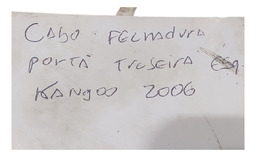 CABO FECHADURA
PORTA TRASEIRA
KANGOO 2006